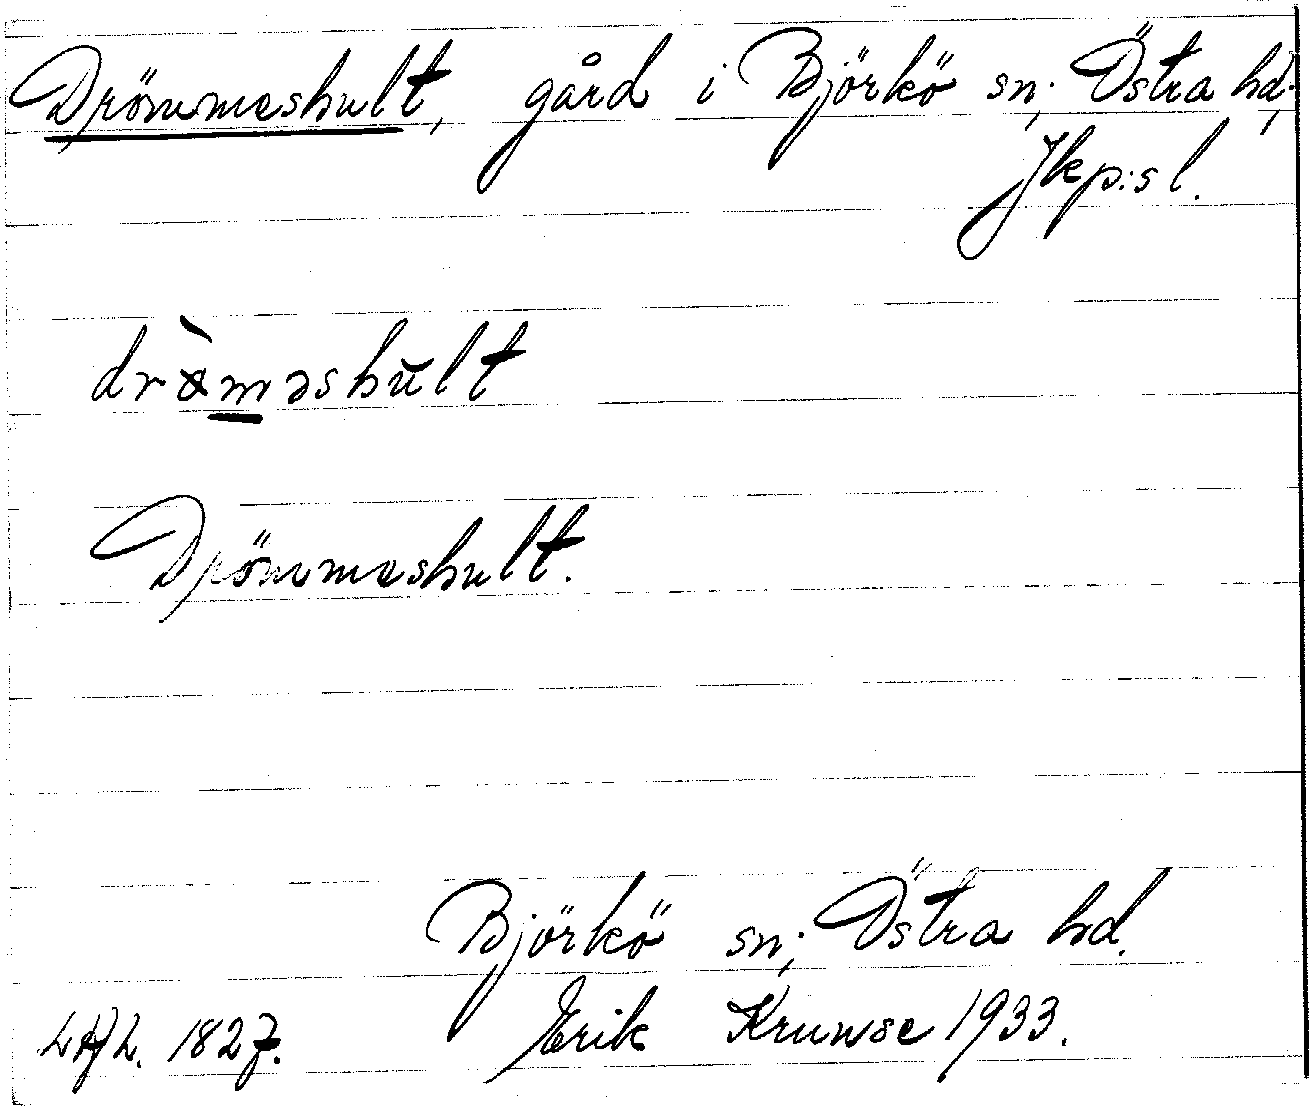 Drömmeshult, gård i Björkö sn; Östra hd;
Jkp:s l.
dròməshŭlt
Drömmeshult.
Björkö sn; Östra hd.
1827. Erik Kruuse 1933.